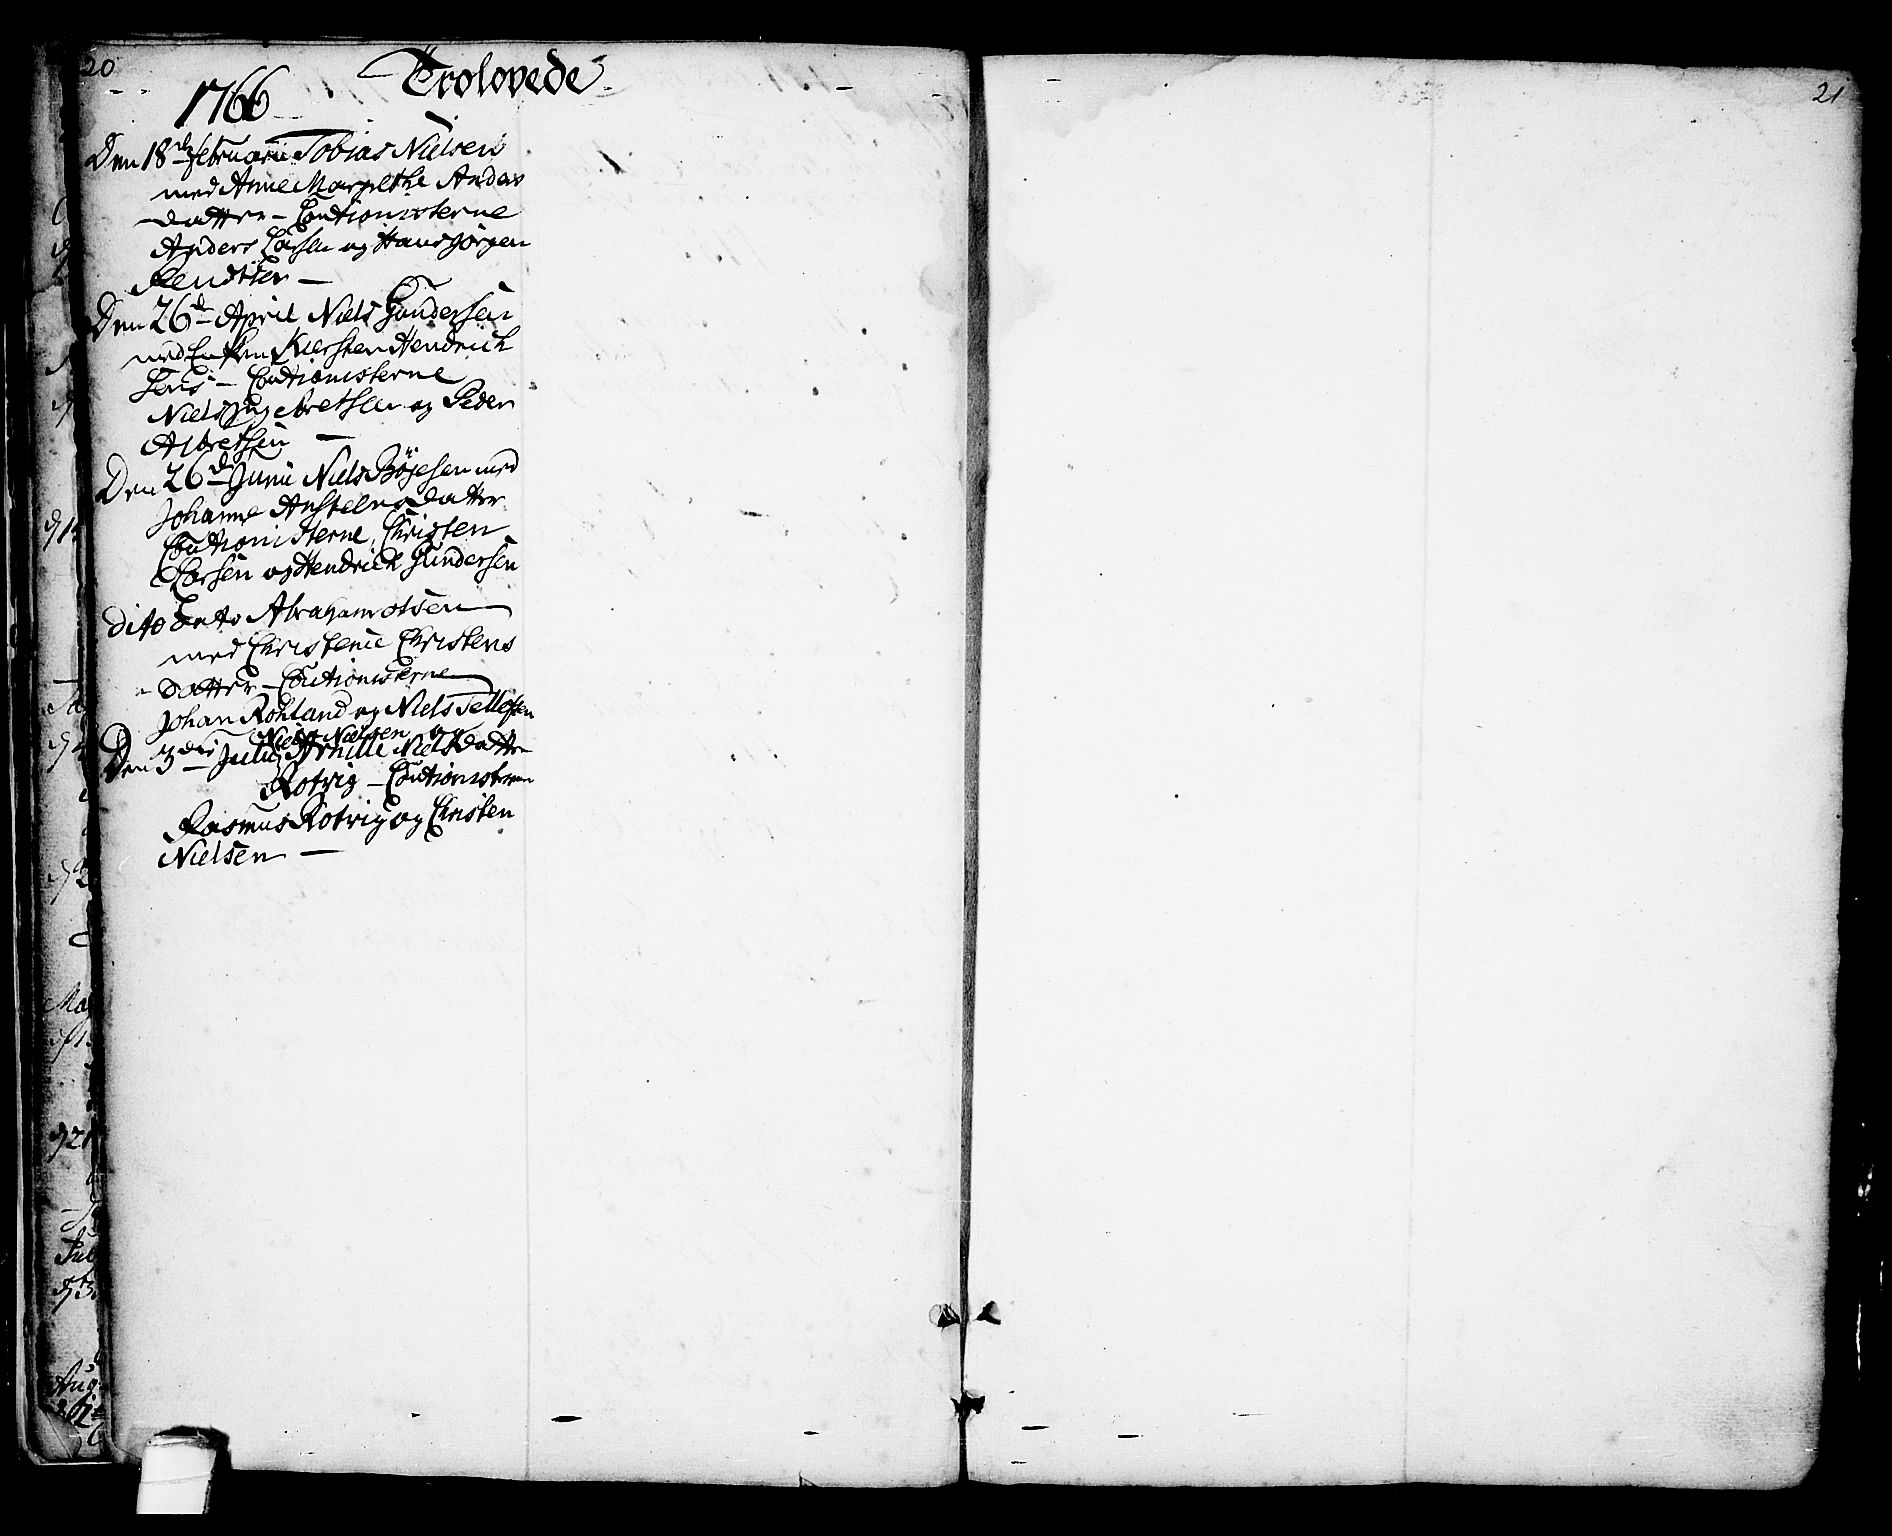 20
Trolovede
1766
Den 18de februarii Tobias Nielsen
med Anne Margrethe Anders
datter - Cautionisterne
Anders Larsen og Hans Jörgen
Bendtsen -
Den 26de April Niels Gundersen
med Enken Kiersten Hendrich
sens - Cautionisterne
Niels Albretsen og Peder
Albretsen -
Den 26de Junii Niels Böjesen med
Johanne Anstensdatter
Cautionisterne, Christen
Larsen og Hendrich Gundersen
dito dato Abraham Olsen
med Christenie Christens
datter - Cautionisterne
Johan Rohland og Niels Tellefsen
Niels Nielsen og
Den 3die Julii Nielsdatter
Rotvig - Cautionisterne
Rasmus Rotvig og Christen
Nielsen -
21